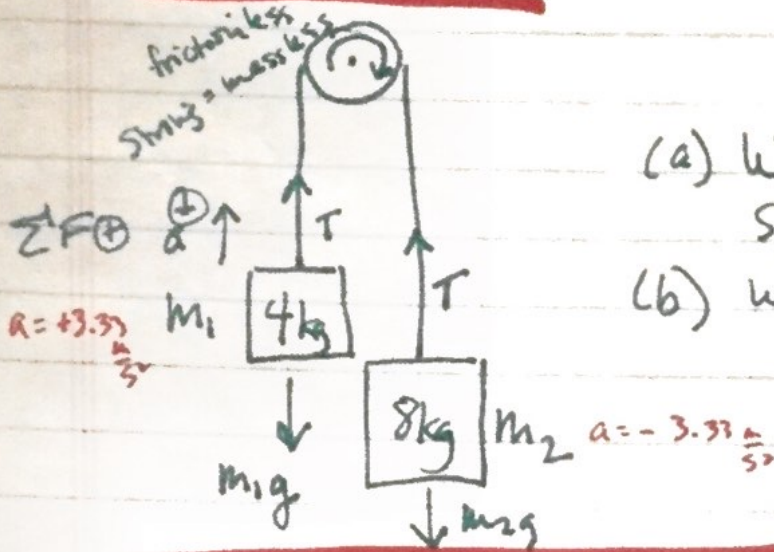 frictionless
string = massless
(a)
ΣF⊕ ⊕ a ↑
T
T
(b)
a = +3.33 m/s²
m₁
4kg
8kg
m₂
a = - 3.33 m/s²
m₁g
m₂g